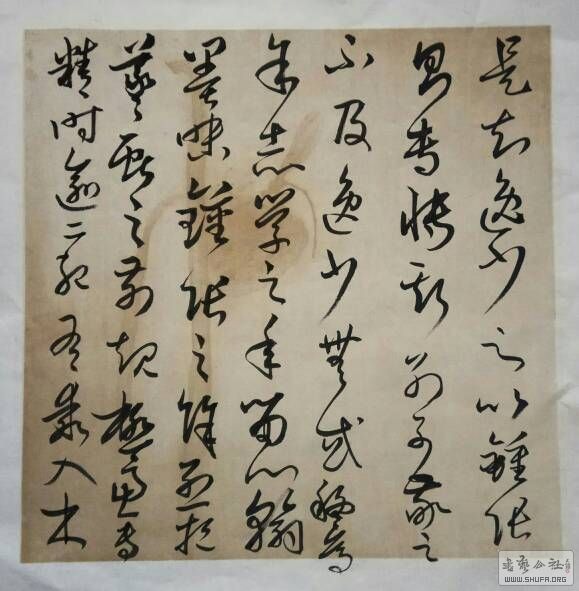 是知逸少之比鍾張
則專博斯別子敬之
不及逸少無或疑焉
余志學之年留心翰
墨味鍾張之餘烈挹
羲獻之前規極慮專
精時逾二紀有乖入木
書藝公社
WWW.SHUFA.ORG